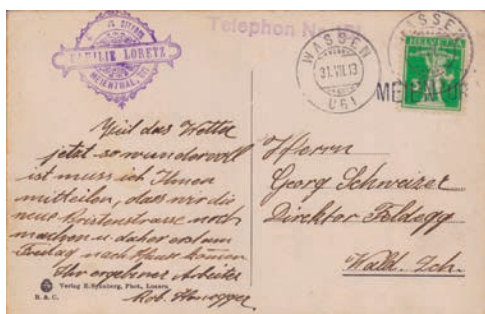 Telephon Nr.
FAMILIE LORETZ
MEIENTHAL, URI
WASSEN
31.VII.13
URI
WASSEN
HELVETIA
5
MEIEN-URI
Weil das Wetter
jetzt so wundervoll
ist muss ich Ihnen
mitteilen, dass wir die
neue Bristenstrasse noch
machen u daher erst am
Freitag nach Haus können
Ihr ergebener Arbeiter
Rob. Honegger
Herrn
Georg Schweizer
Direktor Feldegg
Wald. Zch.
Verlag E. Phot., Luzern
R. & C.